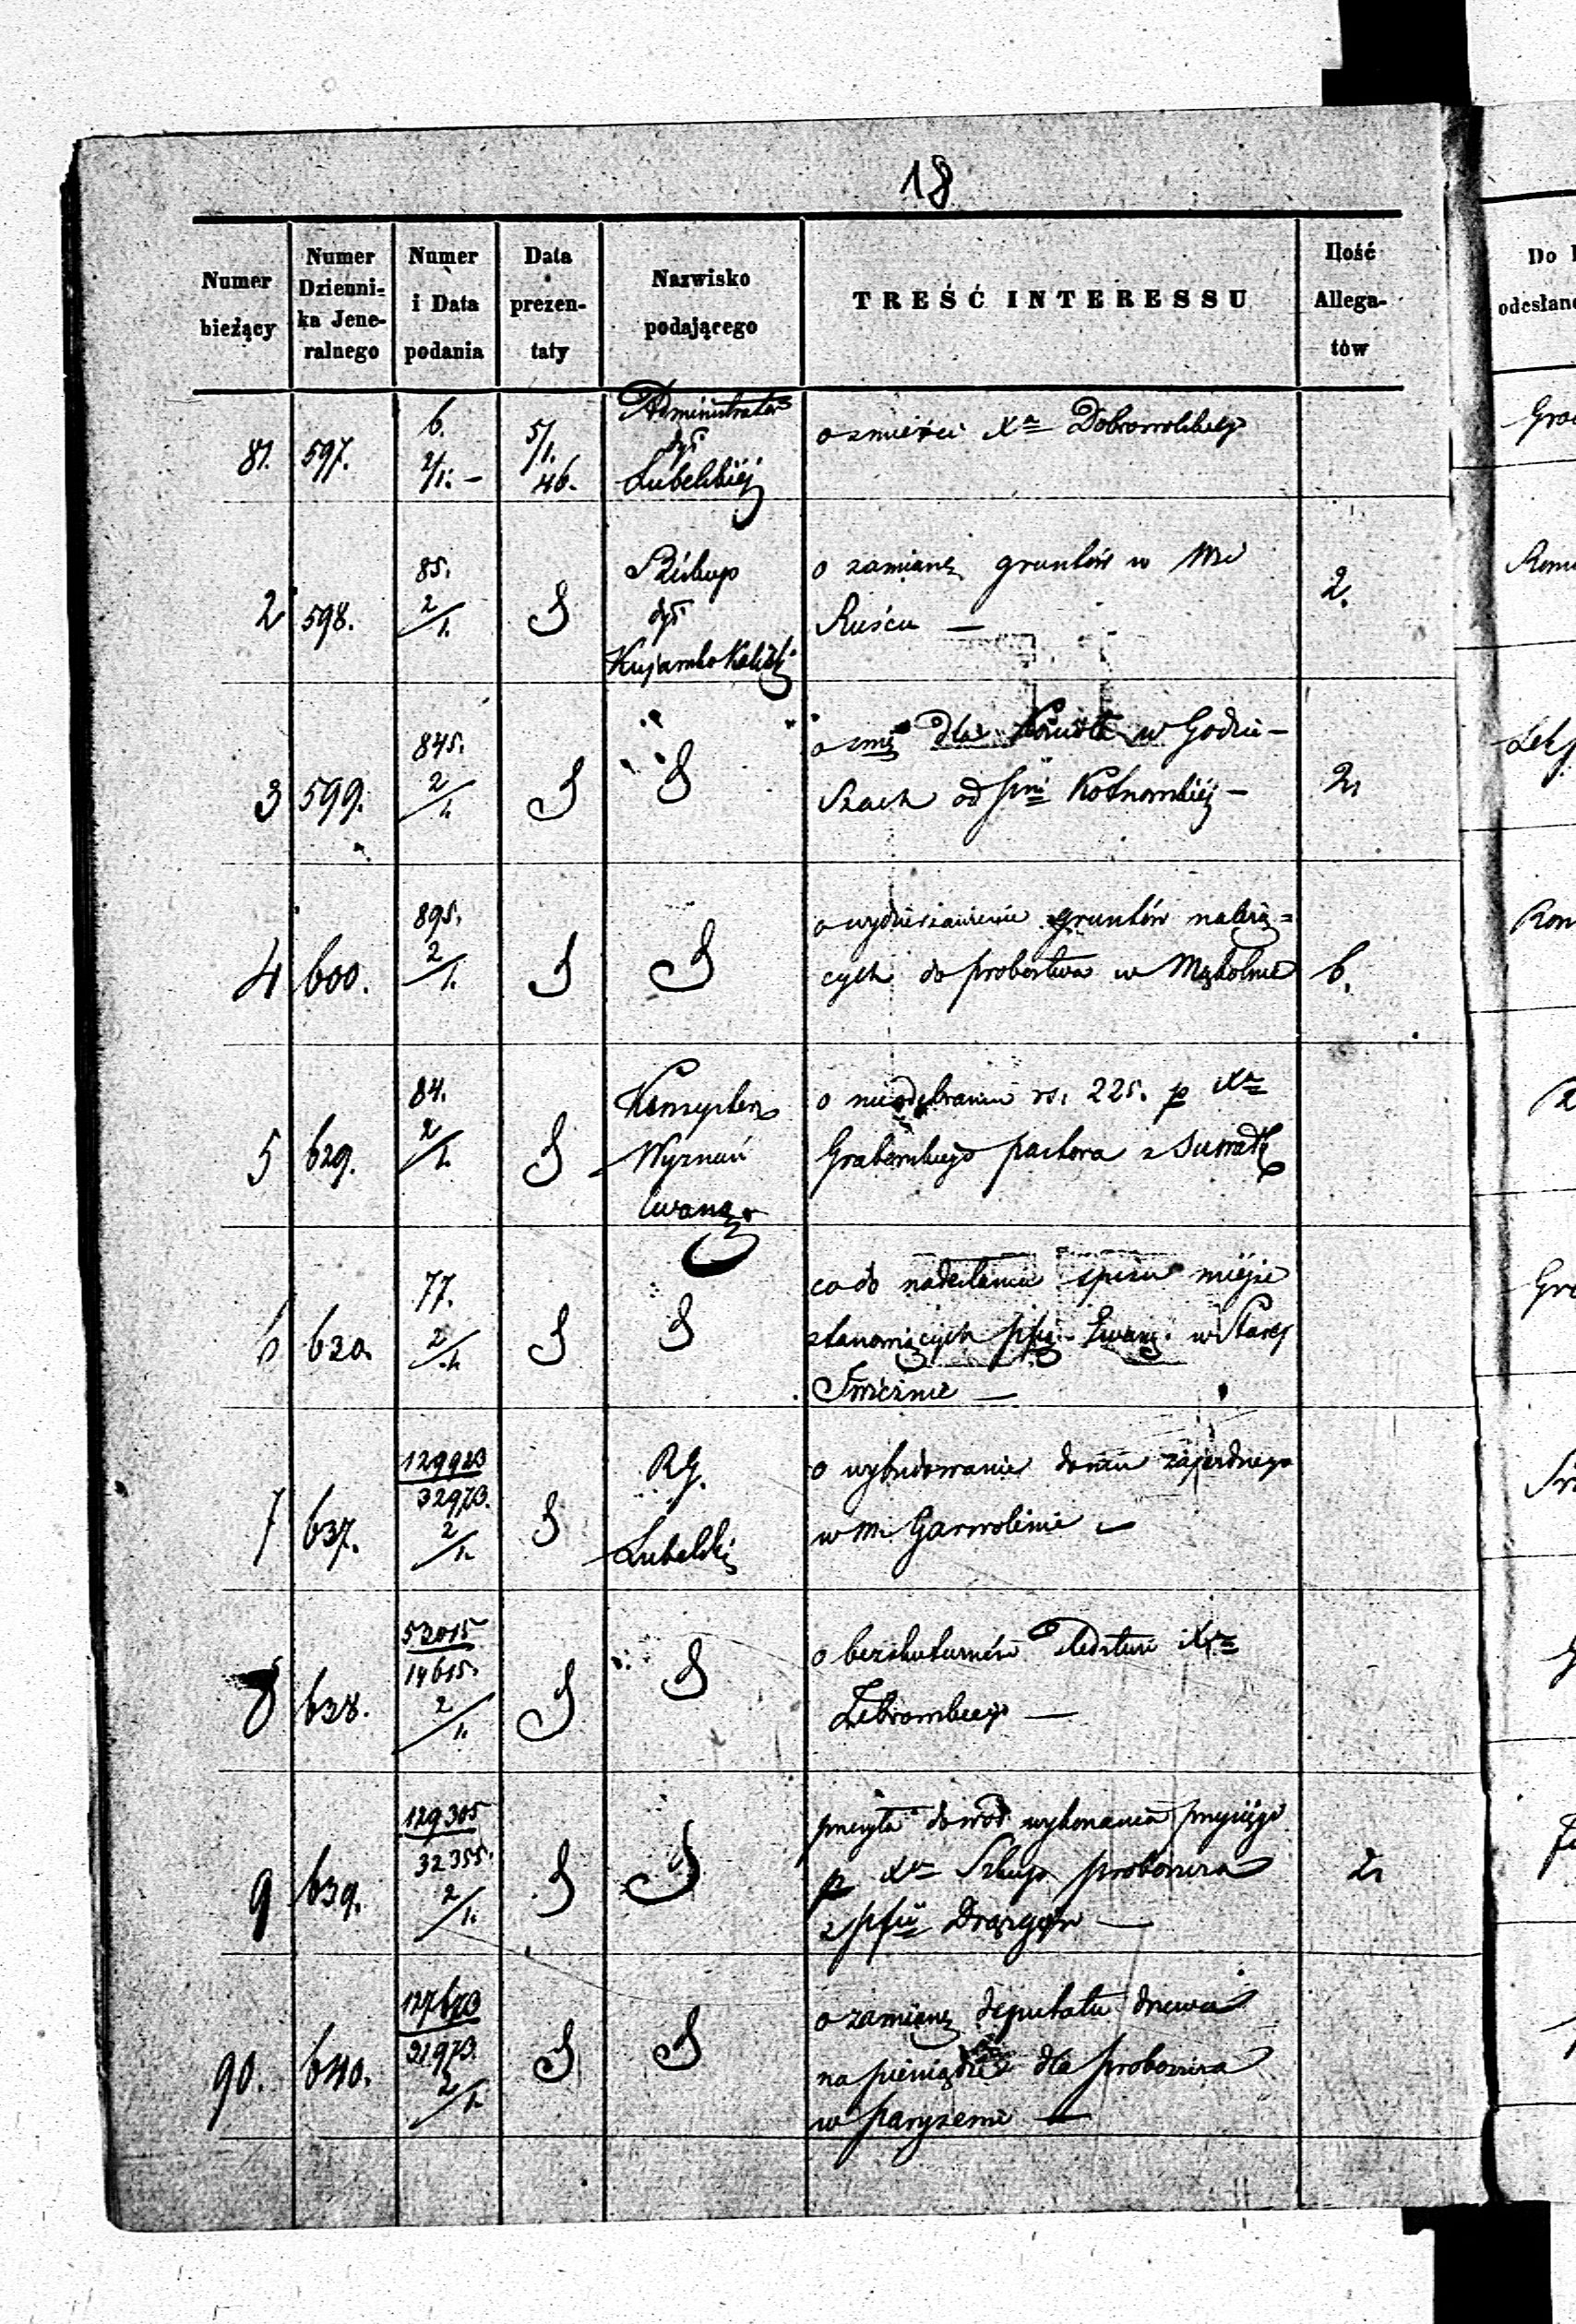 18
Numer bieżący
Numer Dzienni- ka Jene- ralnego
Numer i Data podania
Data prezen- taty
Nazwisko podającego
TREŚĆ INTERESSU
Ilość Allega- tów
81. 597. 6. 2/1. – 5/1. 46.
Administrator
dyi
Lubelskiéj
o śmierci Xa Dobrowolskiego
2 598. 85. 2/1.
Biskup
dyi
Kujawsko Kalisk
o zamianę gruntów w Wsi
Ruścu —
2.
3 599. 845. 2/1.
w Godzie-
szach od
2.
4 600. 895. 2/1.
o wydzierżawienie gruntów należą=
cych do probostwa w Mąkolnie
6.
5 629. 84. 2/1.
Konsystorz
Wyznań
Ewang
o nieodebraniu rs. 225. p Xa
pastora z Suwałk
6 630. 77. 2/1.
co do nadesłania spisu miejsc
stanowiących Ewang. w Starej
7 637. 129923 32973. 2/1.
R.G.
Lubelski
o wybudowanie domu zajezdnego
w m. Garwolinie —
8 638. 53015 14615. 2/1.
o bezskuteczności śledztwa Xa
Żebrowskiego —
9 639. 129305 32355. 2/1.
dowód wykonania przysięgi
p Xa proboszcza
z pfii Drążgów —
2.
90. 640. 127673 31973. 2/1.
o zamianę deputatu drzewa
na pieniądze dla proboszcza
w Parysewie —
Do
odesłano